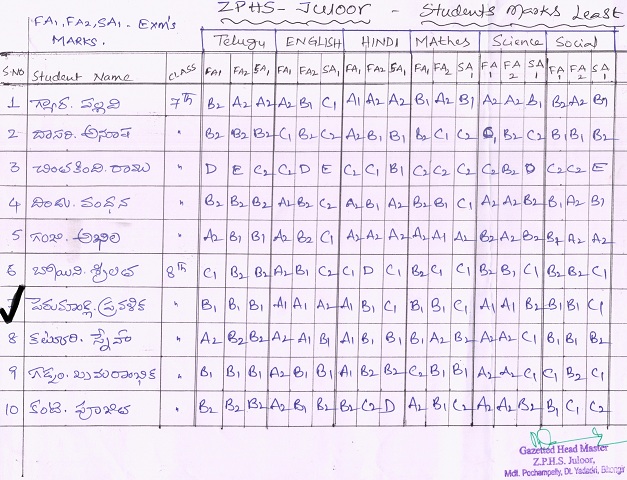 ZPHS- Juloor - Students Marks Least
FA1, FA2, SA1 - Exm's
MARKS.
Telugu ENGLISH HINDI Mathes Science Social
S.NO Student Name CLASS FA1 FA2 SA1 FA1 FA2 SA1 FA1 FA2 SA1 FA1 FA2 SA1 FA1 FA2 SA1 FA1 FA2 SA1
1 7th B2 A2 A2 A2 B1 C1 A1 A2 A2 B1 A2 B1 A2 A2 B1 B2 A2 B1
2 దాసరి. అనూష " B2 B2 B2 C1 B2 C2 A2 B1 B1 B2 C1 C2 C1 B2 C2 B1 B1 B2
3 చింతకింది. రాము " D E C2 C2 D E C2 C1 B1 C2 C2 C2 C2 B2 D C2 C2 E
4 వందన " B2 B2 B2 A2 B2 C2 A2 B1 A2 B2 B1 C1 A2 A2 B2 B1 A2 B1
5 గంజి. అఖిల " A2 B1 B1 A2 B2 C1 A2 A2 A2 A2 A1 A2 B2 A2 B2 B1 A2 A2
6 శ్రీలత 8th C1 B2 B2 A2 B1 C2 C1 D C1 B2 C1 C1 B2 B2 C1 B2 B2 C1
7 పెరుమాండ్ల. ప్రవళిక " B1 B1 B1 A1 A1 A2 A1 B1 C1 B1 B1 C1 A1 A1 B2 B1 B1 C1
8 కట్కూరి. స్నేహ " A2 B2 B2 A2 A1 B1 A1 B1 B1 B1 A2 B2 A2 A2 C1 B1 B1 B2
9 గడ్డం. " B1 B1 B1 A2 B1 B1 A1 B2 B2 C2 B1 B1 A2 A2 C1 C1 B2 C1
10 కంటె. పూజిత " B2 B2 B2 A2 B1 B2 B2 C2 D A2 B1 C2 A2 A2 B2 B1 C1 C2
Gazetted Head Master
Z.P.H.S. Juloor,
Mdl. Pochampally, Dt. Yadadri, Bhongir